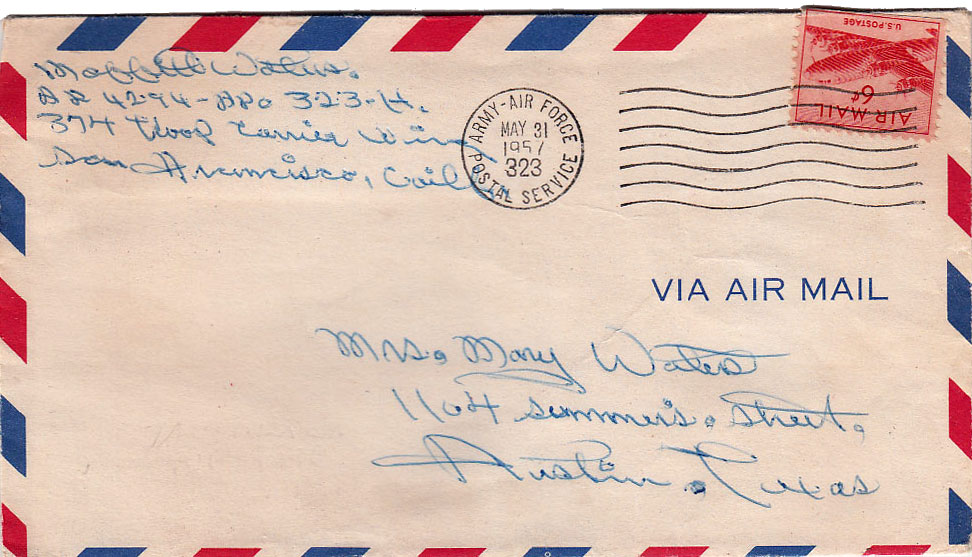 Waters.
AP 4294-APO 323-H.
374 Troop Carrier Wing
San Francisco, Calif.
ARMY-AIR FORCE
MAY 31
1957
323
POSTAL SERVICE
U.S. POSTAGE
6¢
AIR MAIL
VIA AIR MAIL
Mrs. Mary Waters
1104 Summer's. Street.
Austin, Texas